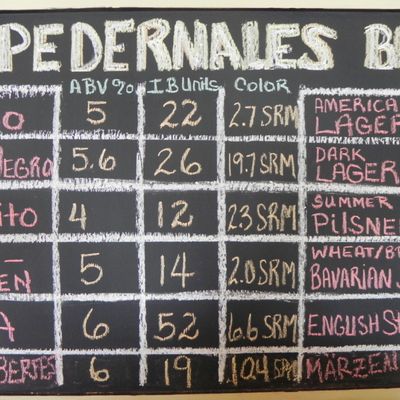 PEDERNALES B
ABV % I.B Units COLOR
O 5 22 2.7 SRM AMERICA LAGER
NEGRO 5.6 26 19.7 SRM DARK LAGER
ITO 4 12 2.3 SRM SUMMER PILSNE
– EN 5 14 2.0 SRM WHEAT/B BAVARIAN
A 6 52 6.6 SRM ENGLISH S
BERFES 6 19 10.4 SRM MÄRZEN